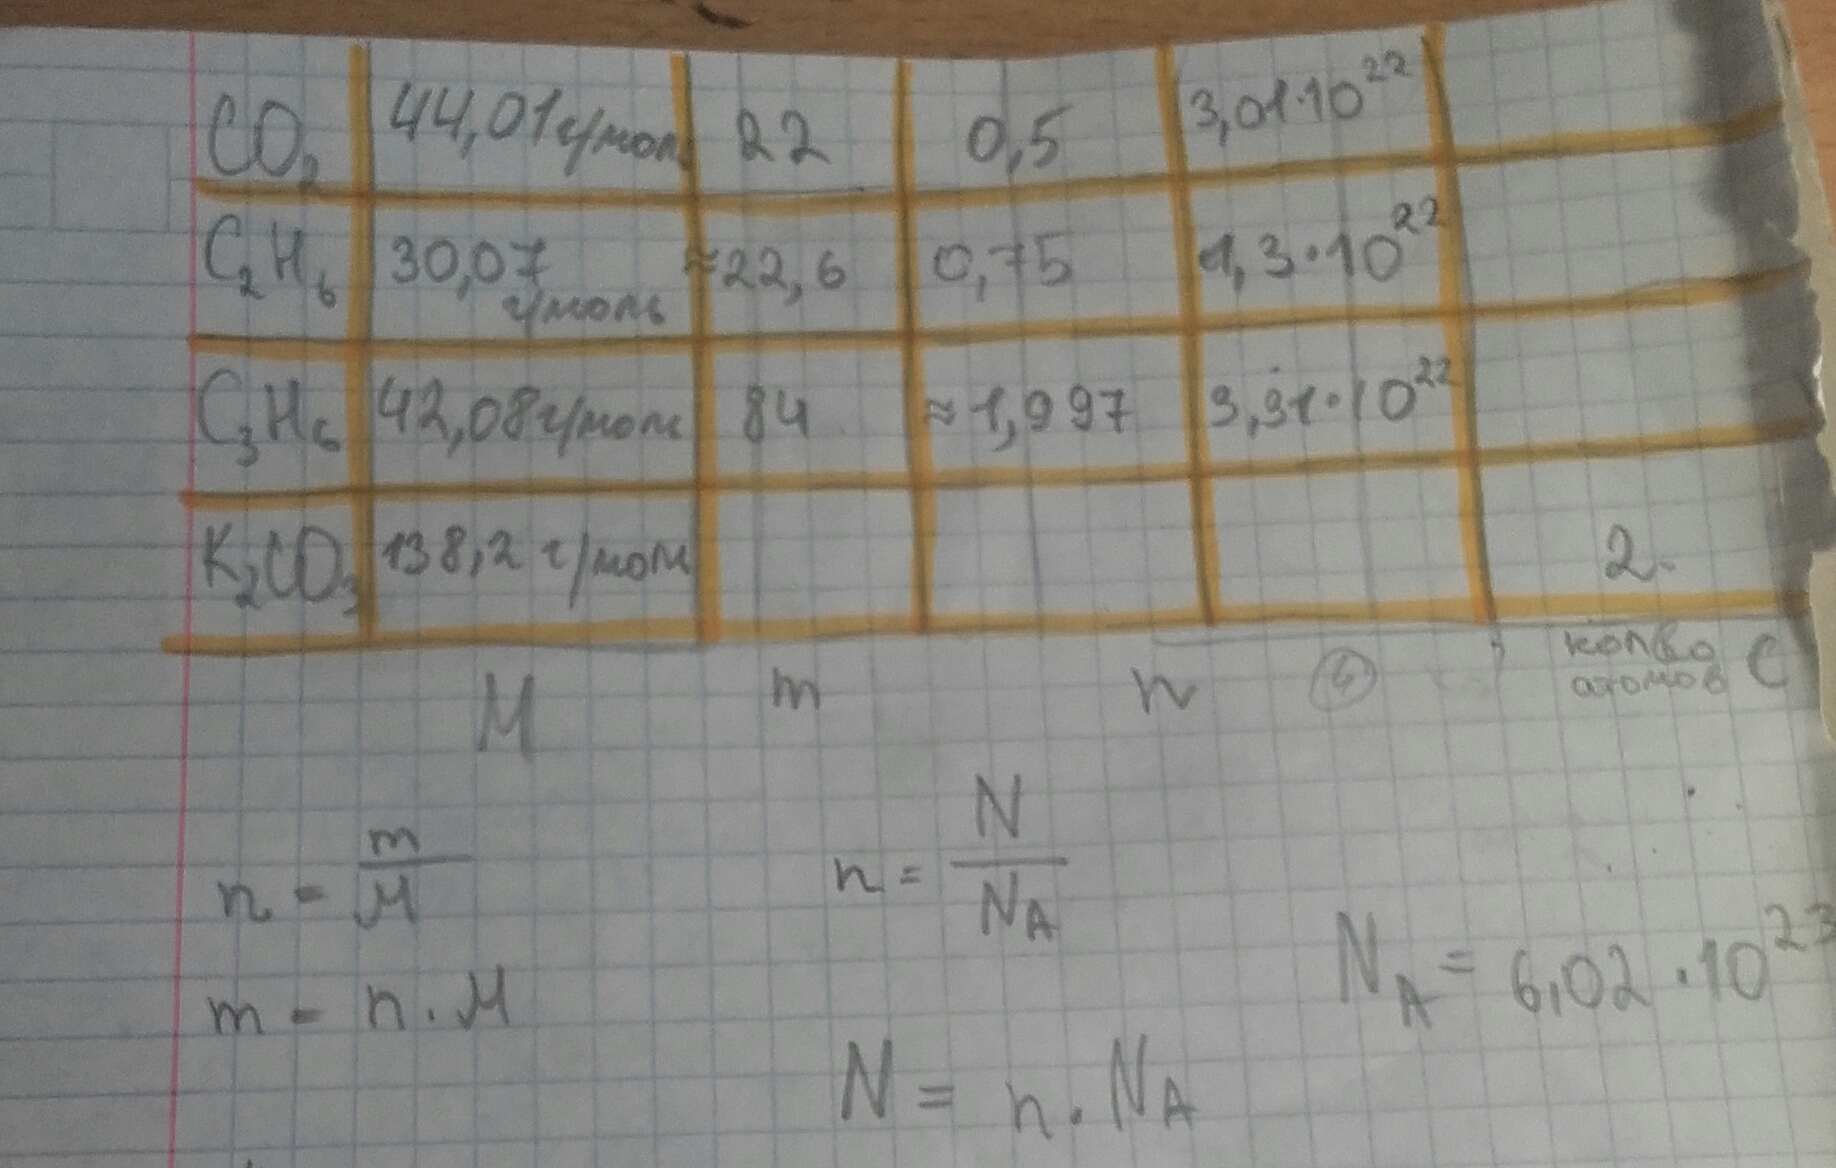 CO₂ 44,01 г/мол 22 0,5 3,01·10²²
C₂H₆ 30,07 г/моль ≈22,6 0,75 1,3·10²²
C₃H₆ 42,08 г/моль 84 ≈1,997 3,31·10²²
K₂CO₃ 138,2 г/мол 2
M m n кол-во атомов C
n = m/M
n = N/N_A
N_A = 6,02·10²³
m = n·M
N = n·N_A